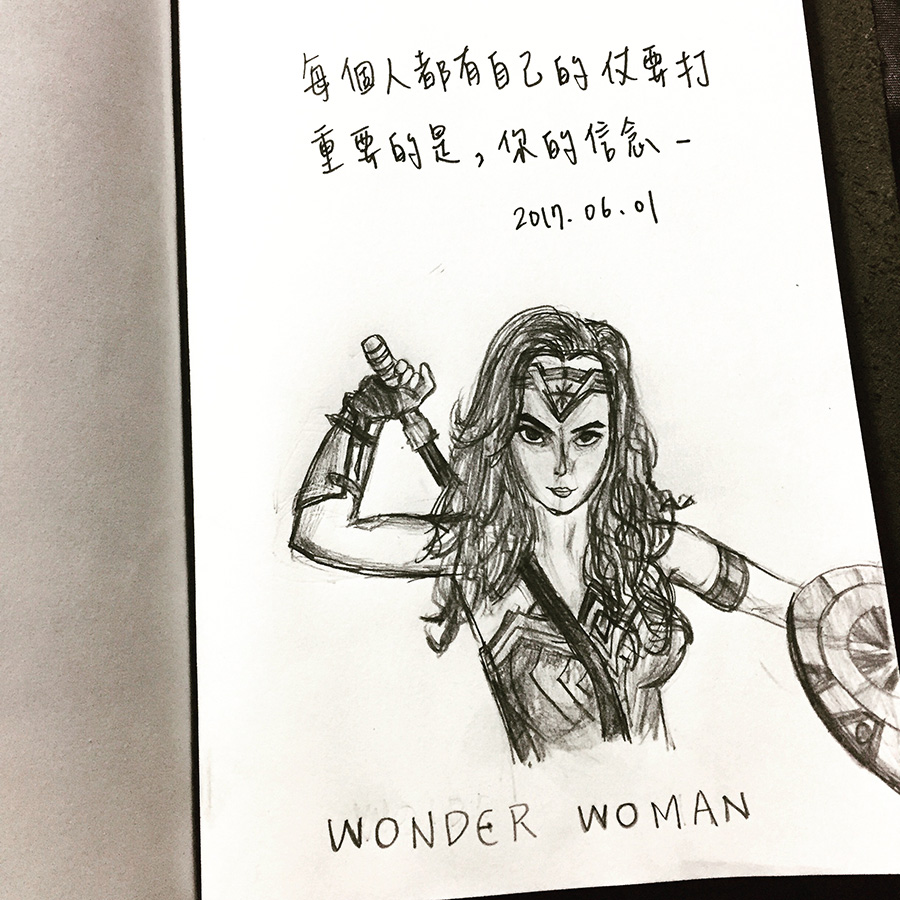 每個人都有自己的仗要打
重要的是，你的信念－
2017.06.01
WONDER WOMAN